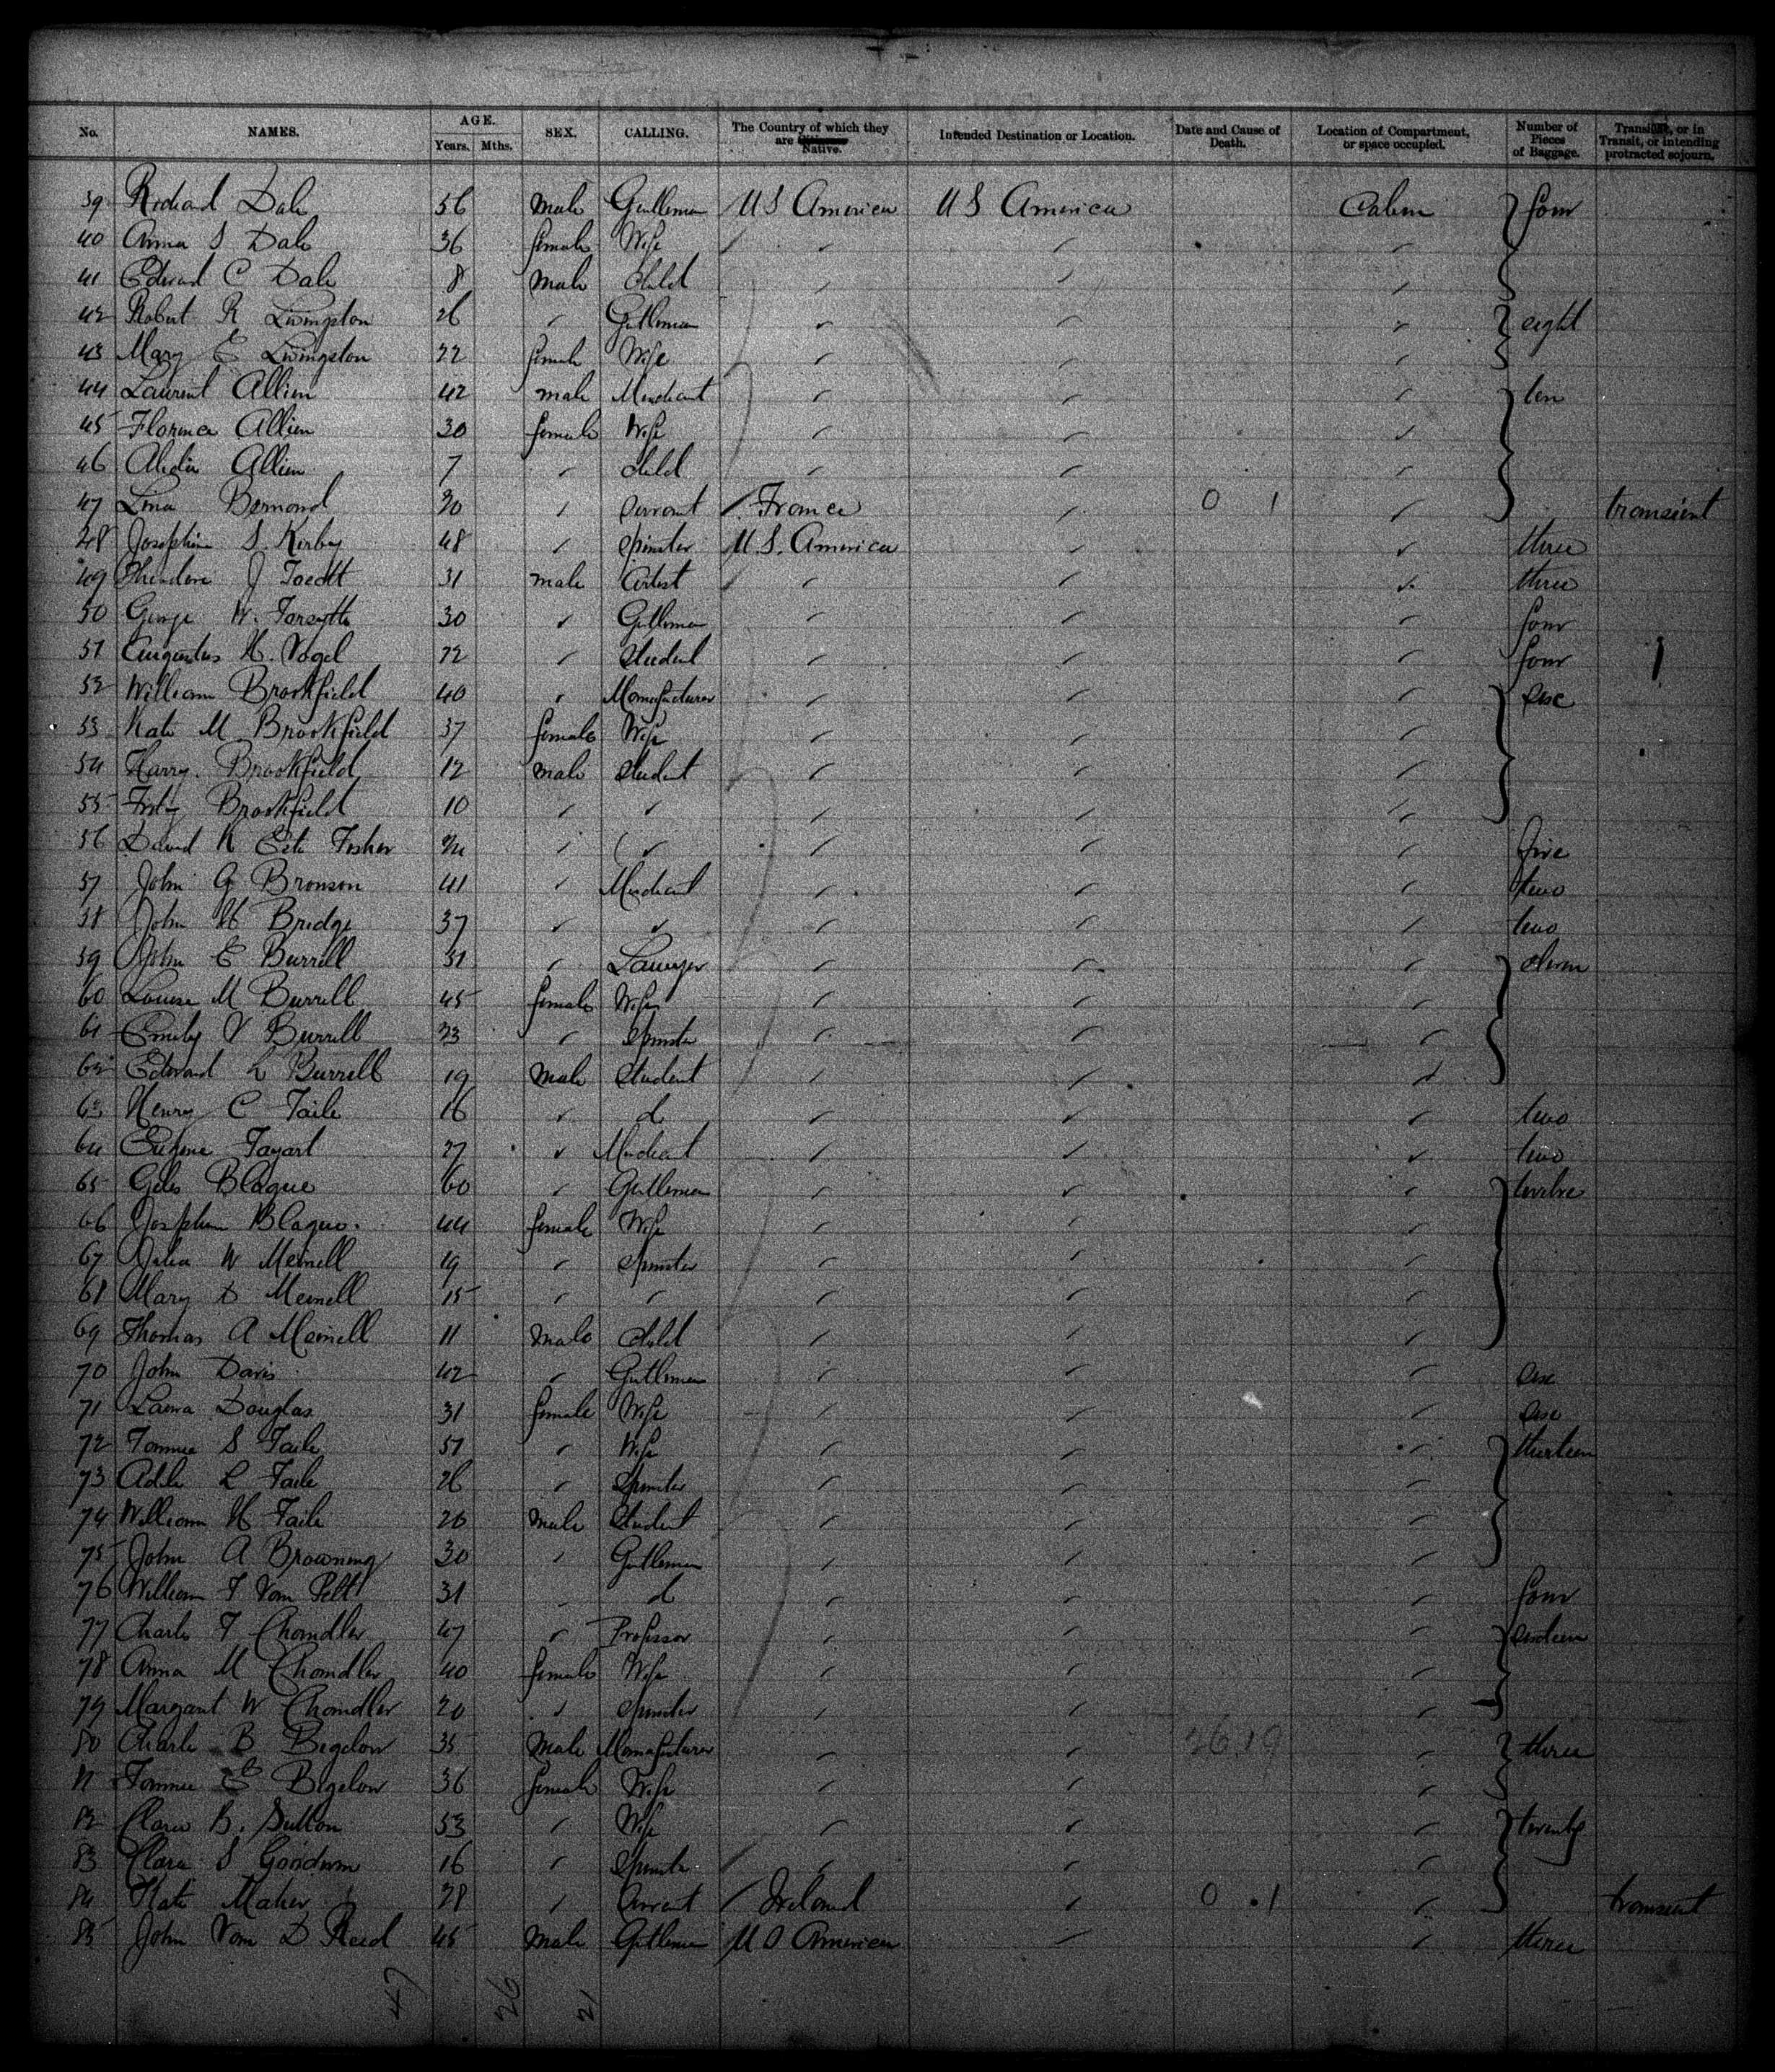 No. NAMES. AGE. Years. Mths. SEX. CALLING. The Country of which they are Native. Intended Destination or Location. Date and Cause of Death. Location of Compartment, or space occupied. Number of Pieces of Baggage. Transient, or in Transit, or intending protracted sojourn.
39 Richard Dale 56 male Gentleman U S America U S America Cabin four
40 Anna S Dale 36 female Wife
41 Edward C Dale 8 male child
42 Robert R Livingston 26 Gentleman eight
43 Mary E Livingston 22 female Wife
44 Laurent Allien 42 male Merchant ten
45 Florence Allien 30 female Wife
46 Allien 7 child
47 Lina Bernond 30 servant France 0 1 transient
48 Josephine S. Kirby 48 spinster U.S. America three
49 Theodore J Toedt 31 male Artist three
50 George W. Forsyth 30 Gentleman four
51 Augustus H. Vogel 22 student four
52 William Brookfield 40 Manufacturer six
53 Kate M. Brookfield 37 female Wife
54 Harry. Brookfield 12 male student
55 Brookfield 10
56 David K Este Fisher five
57 John G Bronson 41 Merchant two
58 John H Bridge 37 two
59 John E Burrill 51 Lawyer eleven
60 Louise M Burrill 45 female Wife
61 Emily V Burrill 23 spinster
62 Edward L Burrill 19 male student
63 Henry C Taile 16 d two
64 Eugene Fayart 27 Merchant two
65 Giles Blague 60 Gentleman twelve
66 Josephine Blague. 44 female Wife
67 Julia W Meinell 19 spinster
68 Mary D Meinell 15
69 Thomas A Meinell 11 male child
70 John Davis 42 Gentleman six
71 Laura Douglas 31 female Wife six
72 Fannie S Taile 51 Wife thirteen
73 Adele L Taile 26 spinster
74 William H Taile 20 male student
75 John A Browning 30 Gentleman
76 William T Van Pelt 31 d four
77 Charles F Chandler 47 Professor sixteen
78 Anna M Chandler 40 female Wife
79 Margaret W Chandler 20 spinster
80 Charles B Bigelow 35 male Manufacturer three
81 Fannie E Bigelow 36 female Wife
82 Clara B. Sutton 53 Wife twenty
83 Clara S Goodwin 16 spinster
84 Kate Maher 28 servant Ireland 0 1 transient
85 John Van D Reed 45 male Gentleman U S America three
47 26 21